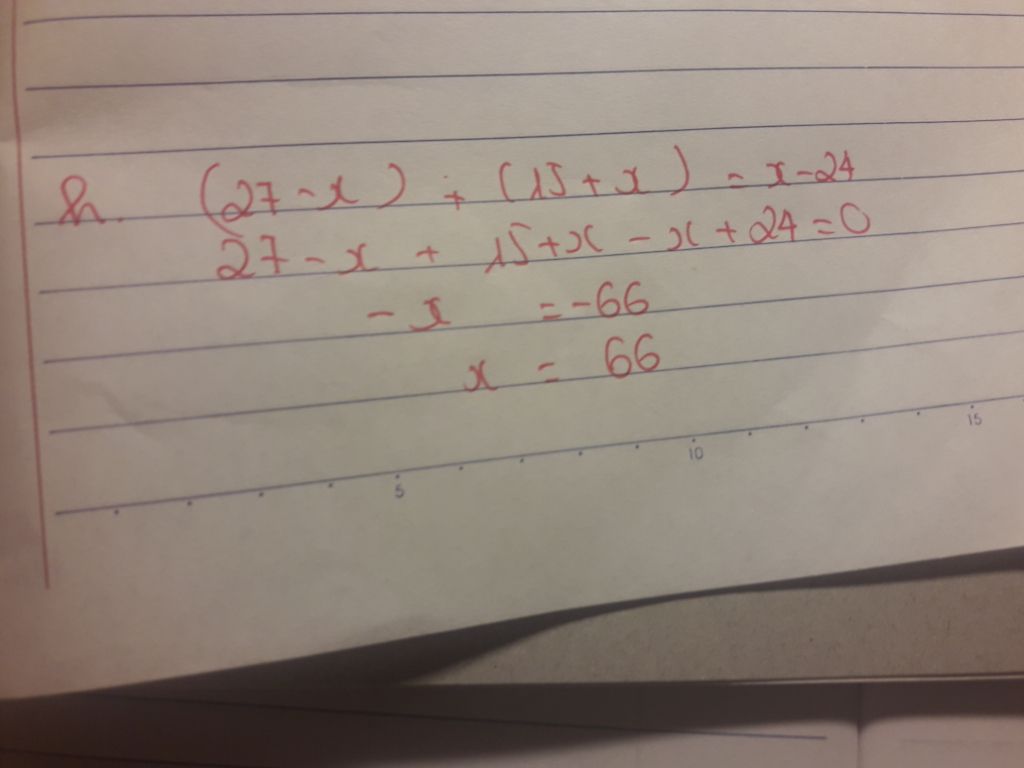 h. (27 - x) + (15 + x) = x - 24
27 - x + 15 + x - x + 24 = 0
- x = - 66
x = 66
5 10 15